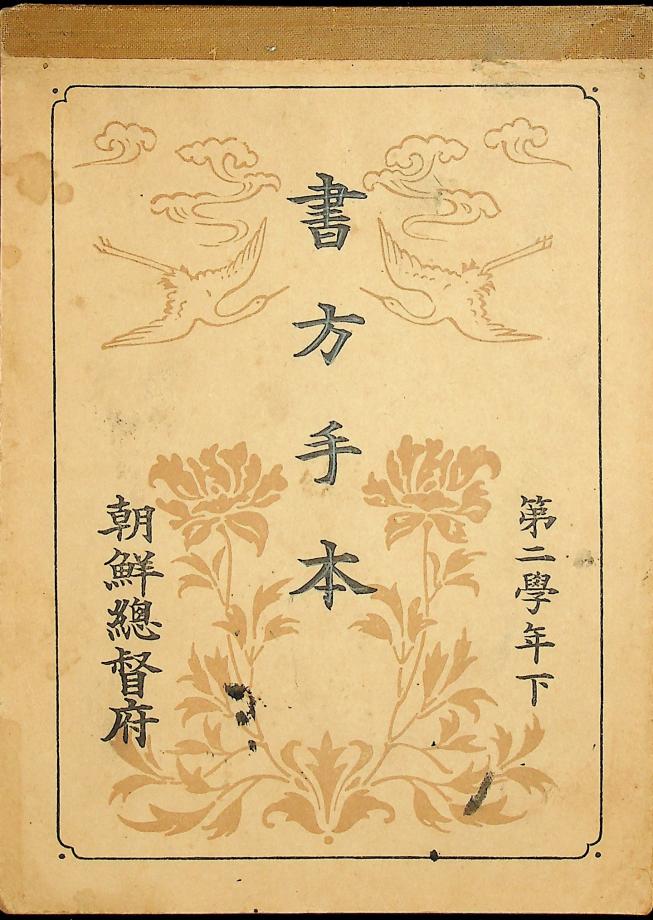 第二學年下
書方手本
朝鮮總督府